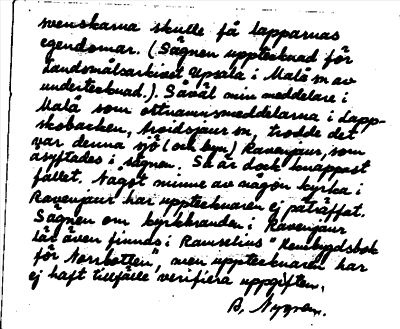 svenskarna skulle få lapparnas
egendomar. (Sägnen upptecknad för
Landsmålsarkivet Upsala i Malå sn av
undertecknad.). Såväl min meddelare i
Malå som ortnamnsmeddelarna i Lapp-
skobacken, Arvidsjaur sn, trodde det
var denna sjö (och byn) Ravenjaur, som
asyftades i sägnen. Så är dock knappast
fallet. Något minne av någon kyrka i
Ravenjaur har upptecknaren ej påträffat.
Sägnen om kyrkbranden i Ravenjaur
lär även finnas i Ramselius "Hembygdsbok
för Norrbotten", men upptecknaren har
ej haft tillfälle verifiera uppgiften.
B. Nygren.